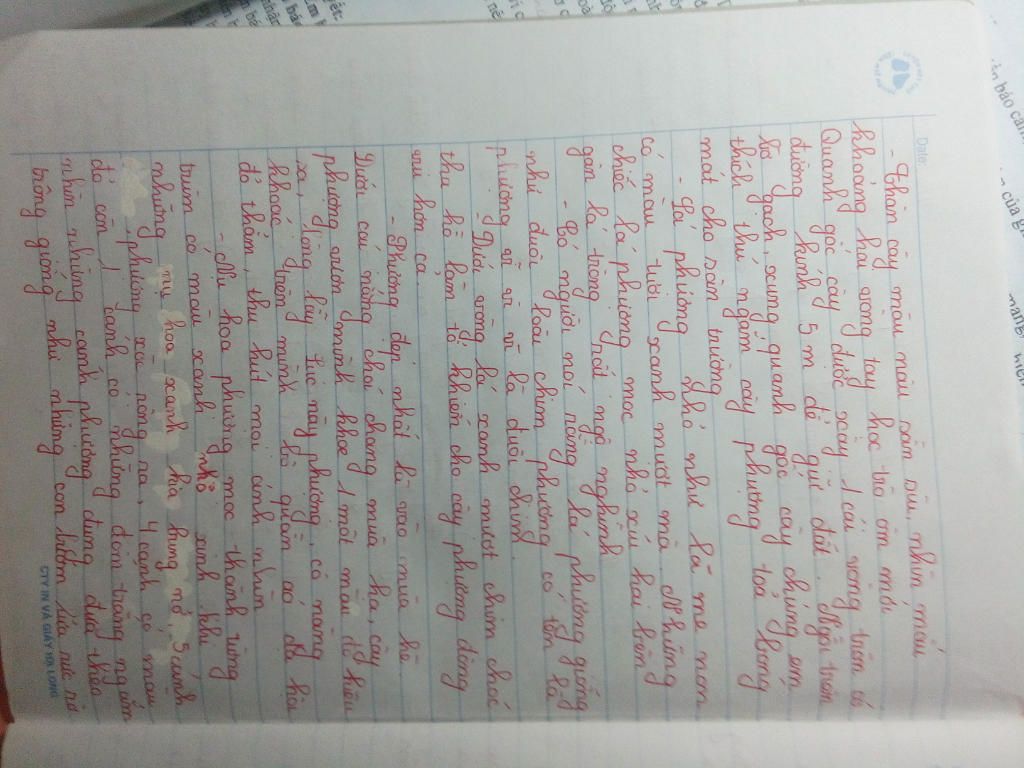 Date:
- Thân cây màu nâu sần sùi, nhìn mấu
khoảng hai vòng tay học trò ôm mới
Quanh gốc cây được xây 1 cái vòng tròn có
đường kính 5m để giữ đất. Ngồi trên
bờ gạch, xung quanh gốc cây chúng em
thích thú ngắm cây phượng toả bóng
mát cho sân trường
- Lá phượng nhỏ như lá me non
có màu tươi xanh mướt mà. Những
chiếc lá phượng mọc nhỏ xíu hai bên
gân lá trông rất ngộ nghĩnh
- Có người nói rằng lá phượng giống
như đuôi loài chim phượng có tên là
phượng vĩ vì vĩ là đuôi chim.
- Dưới vòng lá xanh mướt chim chóc
tha hồ làm tổ khiến cho cây phượng đông
vui hơn cả.
- Phượng đẹp nhất là vào mùa hè.
Dưới cái nắng chói chang mùa hạ, cây
phượng vươn mình khoe 1 một màu đỏ kiêu
sa, lộng lẫy. Lúc này phượng, cô nàng
khoác trên mình bộ quần áo dạ hội
đỏ thắm, thu hút mọi ánh nhìn
- Nụ hoa phượng mọc thành từng
chùm có màu xanh nhỏ xinh. Khi
những nụ hoa xanh hung nở 5 cánh
phượng xoè rộng ra, 4 cánh có màu
đỏ còn 1 cánh có những đốm trắng ngắm
nhìn những cánh phượng đung đưa thấy
trông giống như những con bướm lửa rực rỡ
CTY IN VÀ GIẤY HẠ LONG